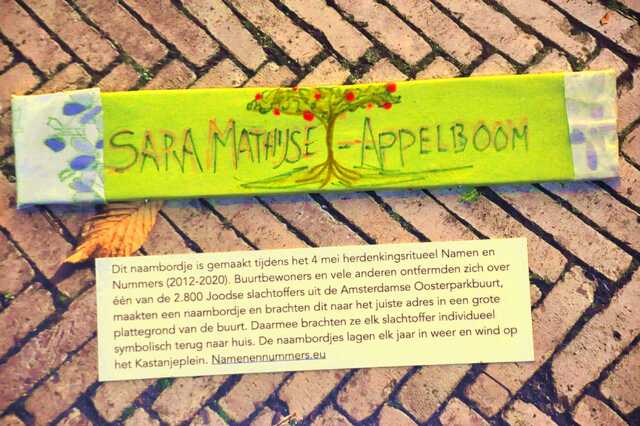 SARA MATHIJSE - APPELBOOM
Dit naambordje is gemaakt tijdens het 4 mei herdenkingsritueel Namen en
Nummers (2012-2020). Buurtbewoners en vele anderen ontfermden zich over
één van de 2.800 Joodse slachtoffers uit de Amsterdamse Oosterparkbuurt,
maakten een naambordje en brachten dit naar het juiste adres in een grote
plattegrond van de buurt. Daarmee brachten ze elk slachtoffer individueel
symbolisch terug naar huis. De naambordjes lagen elk jaar in weer en wind op
het Kastanjeplein. Namenennummers.eu